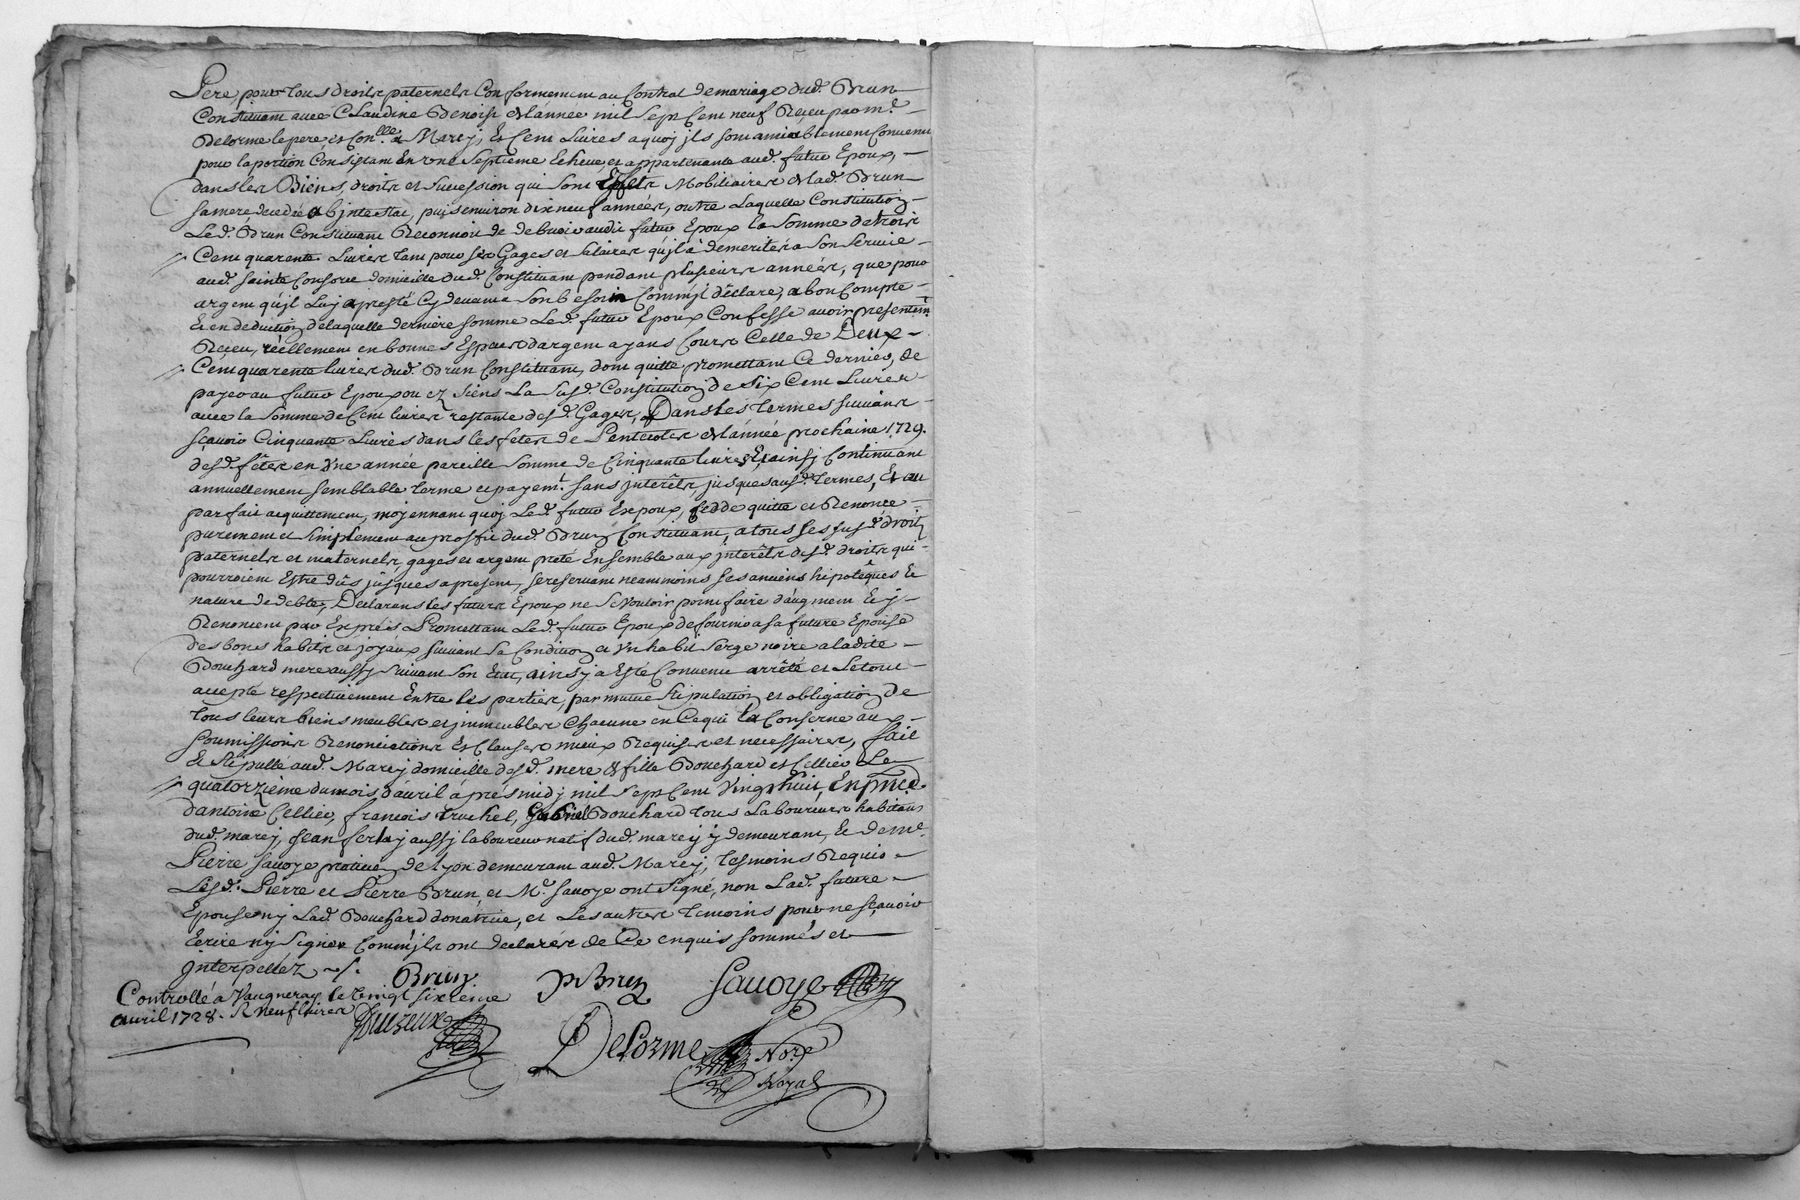 Pere, pour tous droits paternels Conformement au Contrat de mariage dud. Brun
Constituant avec Claudine Benoist de l'année mil sept Cent neuf Reçeu par me.
Delorme le pere, et Conlle. a Marcy, Et Cent Livres a quoy jls sont amiablement Convenu
pour la portion Consistant En Une Septieme Echeue, et appartenante aud. futur Epoux,
dans les Biens, droits et succession qui sont Effets Mobiliaires de lad. Brun
sa mere decedée abintestat, puis environ dix neuf années, outre Laquelle Constitution
Led. Brun Constituant Reconnoit de debvoir audit futur Epoux la Somme de trois
Cent quarente Livres tant pour ses Gages et Salaires qu'jl a demerités a Son Service
aud. sainte Consorce domicille dud. Constituant pendant plusieurs années, que pour
argent qu'jl Luy a presté Cy devant a Son besoin Comm'jl déclare, a bon Compte
Et en deduction de laquelle derniere somme Led. futur Epoux Confesse avoir présentemt.
Reçeu, réellement en bonnes Especes d'argent ayans Cours Celle de Deux
Cent quarente livres dud. Brun Constituant, dont quitte promettant Ce dernier, de
payer au futur Epoux ou ez Siens La Susd. Constitution de Six Cent Livres
avec la Somme de Cent livres restante desd. Gages, Dans les termes suivans
sçavoir Cinquante Livres dans les fetes de Pentecotes de l'année prochaine 1729.
desd. fêtes en Une année pareille Somme de Cinquante livres Et ainsj Continuant
annuellement semblable terme et payemt. sans jnterêts, jusques ausd. termes, Et au
parfait acquittement, moyennant quoy Led. futur Expoux, cedde quitte et Renonce
purement et Simplement au proffit dud. Brun Constituant, a tous ses susd. droits
paternels et maternels, gages et argent preté Ensemble aux jnterêts desd. droits qui
pourroient Estre dûs jusques a present, se reservant neantmoins ses anciens hipotêques Et
nature de debte, Declarans les futurs Epoux ne Se Vouloir point faire d'augment Et y
Renoncent par Exprés Promettant Led. futur Epoux de fournir a sa future Epouse
des bons habits et joyaux suivant Sa Condition et Vn habit Serge noire a ladite
Bouchard mere aussy suivant Son Etat, ainsy a Esté Convenu arrêté et Le tout
accepté respectivement Entre les parties, par mutue Stipulation et obligation de
Tous leurs biens meubles et jmmeubles Chacune en Ce qui la Conserne aux
Soumissions Renonciations Et Clauses mieux Requises et necessaires, fait
Et Stipullé aud. Marcy domicille desd. mere & fille Bouchard et Cellier Le
quatorzieme du mois d'avril a prés midy mil Sept Cent Vingt huit, En pnce
d'antoine Cellier, francois truchet, Gabriel Bouchard tous Laboureurs habitans
dud. marcy, Jean ferlay aussy laboureur natif dud. marcy y demeurant, Et de me.
Pierre savoye praticien de Lyon demeurant aud. Marcy, tesmoins Requis
Lesd. Pierre et Pierre Brun, et Me. Savoye ont Signé, non Lad. future
Epouse ny Lad. Bouchard donatrice, et Les autres temoins pour ne sçavoir
Ecrire ny Signer Comm'jls ont declarés de Ce enquis sommés et
jnterpellez
Brun P Brun Savoye
Controllé à Vaugneray le vingt sixieme
avril 1728. R neuf livres
Delorme Nore
Royal